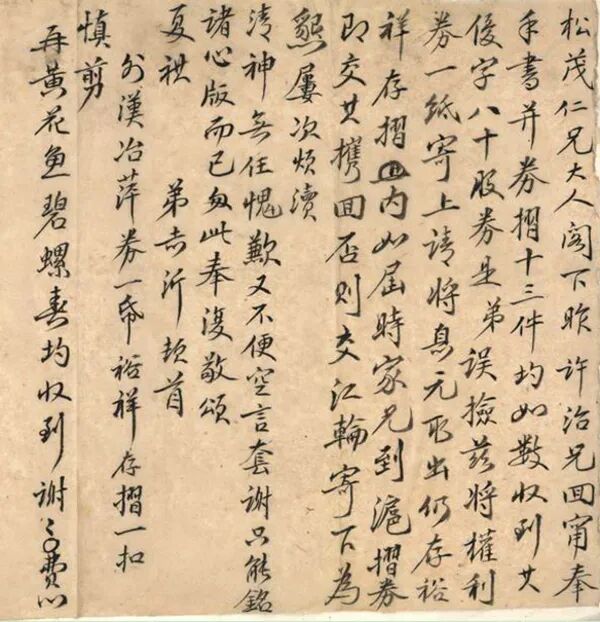 松茂仁兄大人阁下昨许治兄回甯奉
手書并券摺十三件均如数收到廿
優字八十股券是弟误撿兹将權利
券一纸寄上请将息元取出仍存裕
祥存摺内如届時家兄到滬摺券
即交其携回否则交江輪寄下為
懇屢次烦瀆
清神無任愧歉又不便空言套谢只能銘
諸心版而已匆此奉復敬颂
夏祺
弟赤沂頓首
外漢冶萍券一帋裕祥存摺一扣
慎剪
再黄花鱼碧螺春均收到谢谢費心